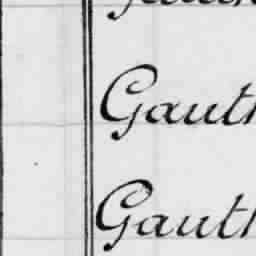 Gauth
Gauth